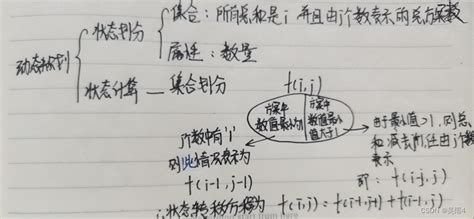 集合：所有总和是i 并且由j个数表示的总方案数
状态划分
属性：数量
动态规划
状态计算 — 集合划分
f(i,j)
方案中
数值最小为1
方案中
数值最小
值大于1
j个数中有"1"
则此情况表示为
f(i-1, j-1)
由于最小值>1, 则总
和减去j后, 任由j个数
表示
即：f(i-j, j)
∴状态转移方程为 f(i,j) = f(i-1,j-1) + f(i-j,j)
CSDN @